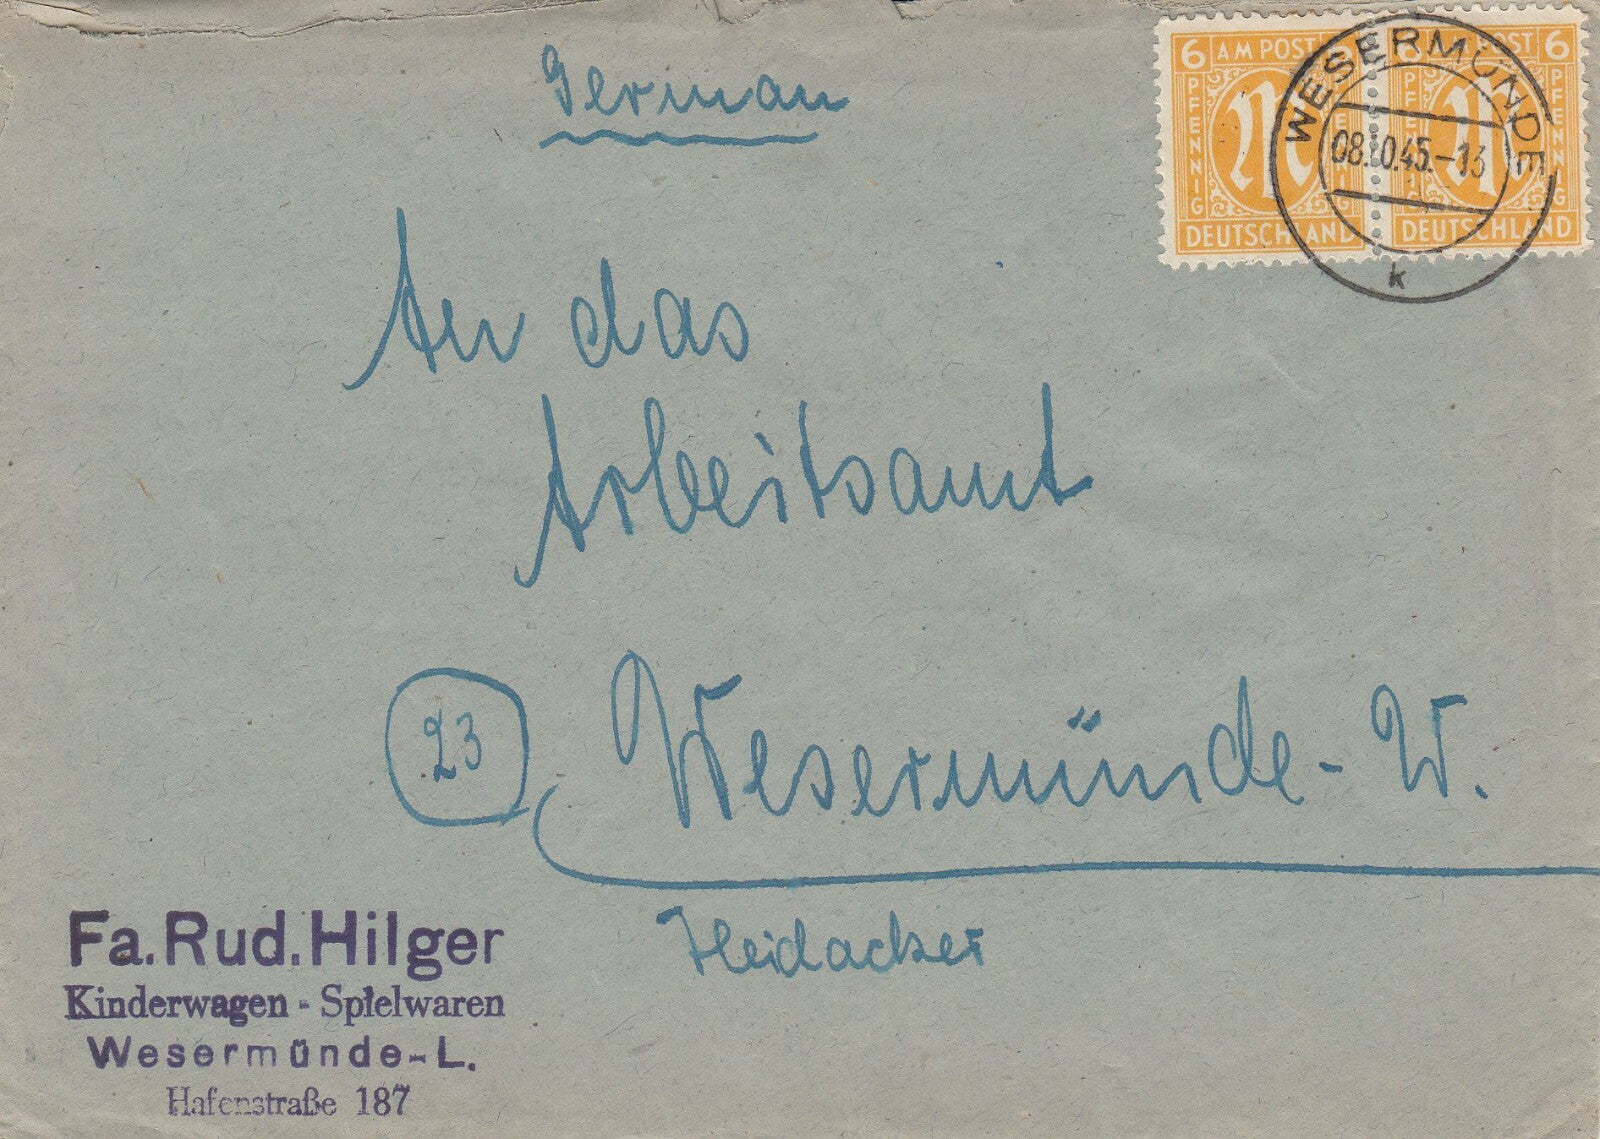 German
6 AM POST 6
PFENNIG
DEUTSCHLAND
6 AM POST 6
PFENNIG
DEUTSCHLAND
WESERMÜNDE
08.10.45.-13
k
An das
Arbeitsamt
23
Wesermünde-W.
Heidacker
Fa. Rud. Hilger
Kinderwagen - Spielwaren
Wesermünde-L.
Hafenstraße 187